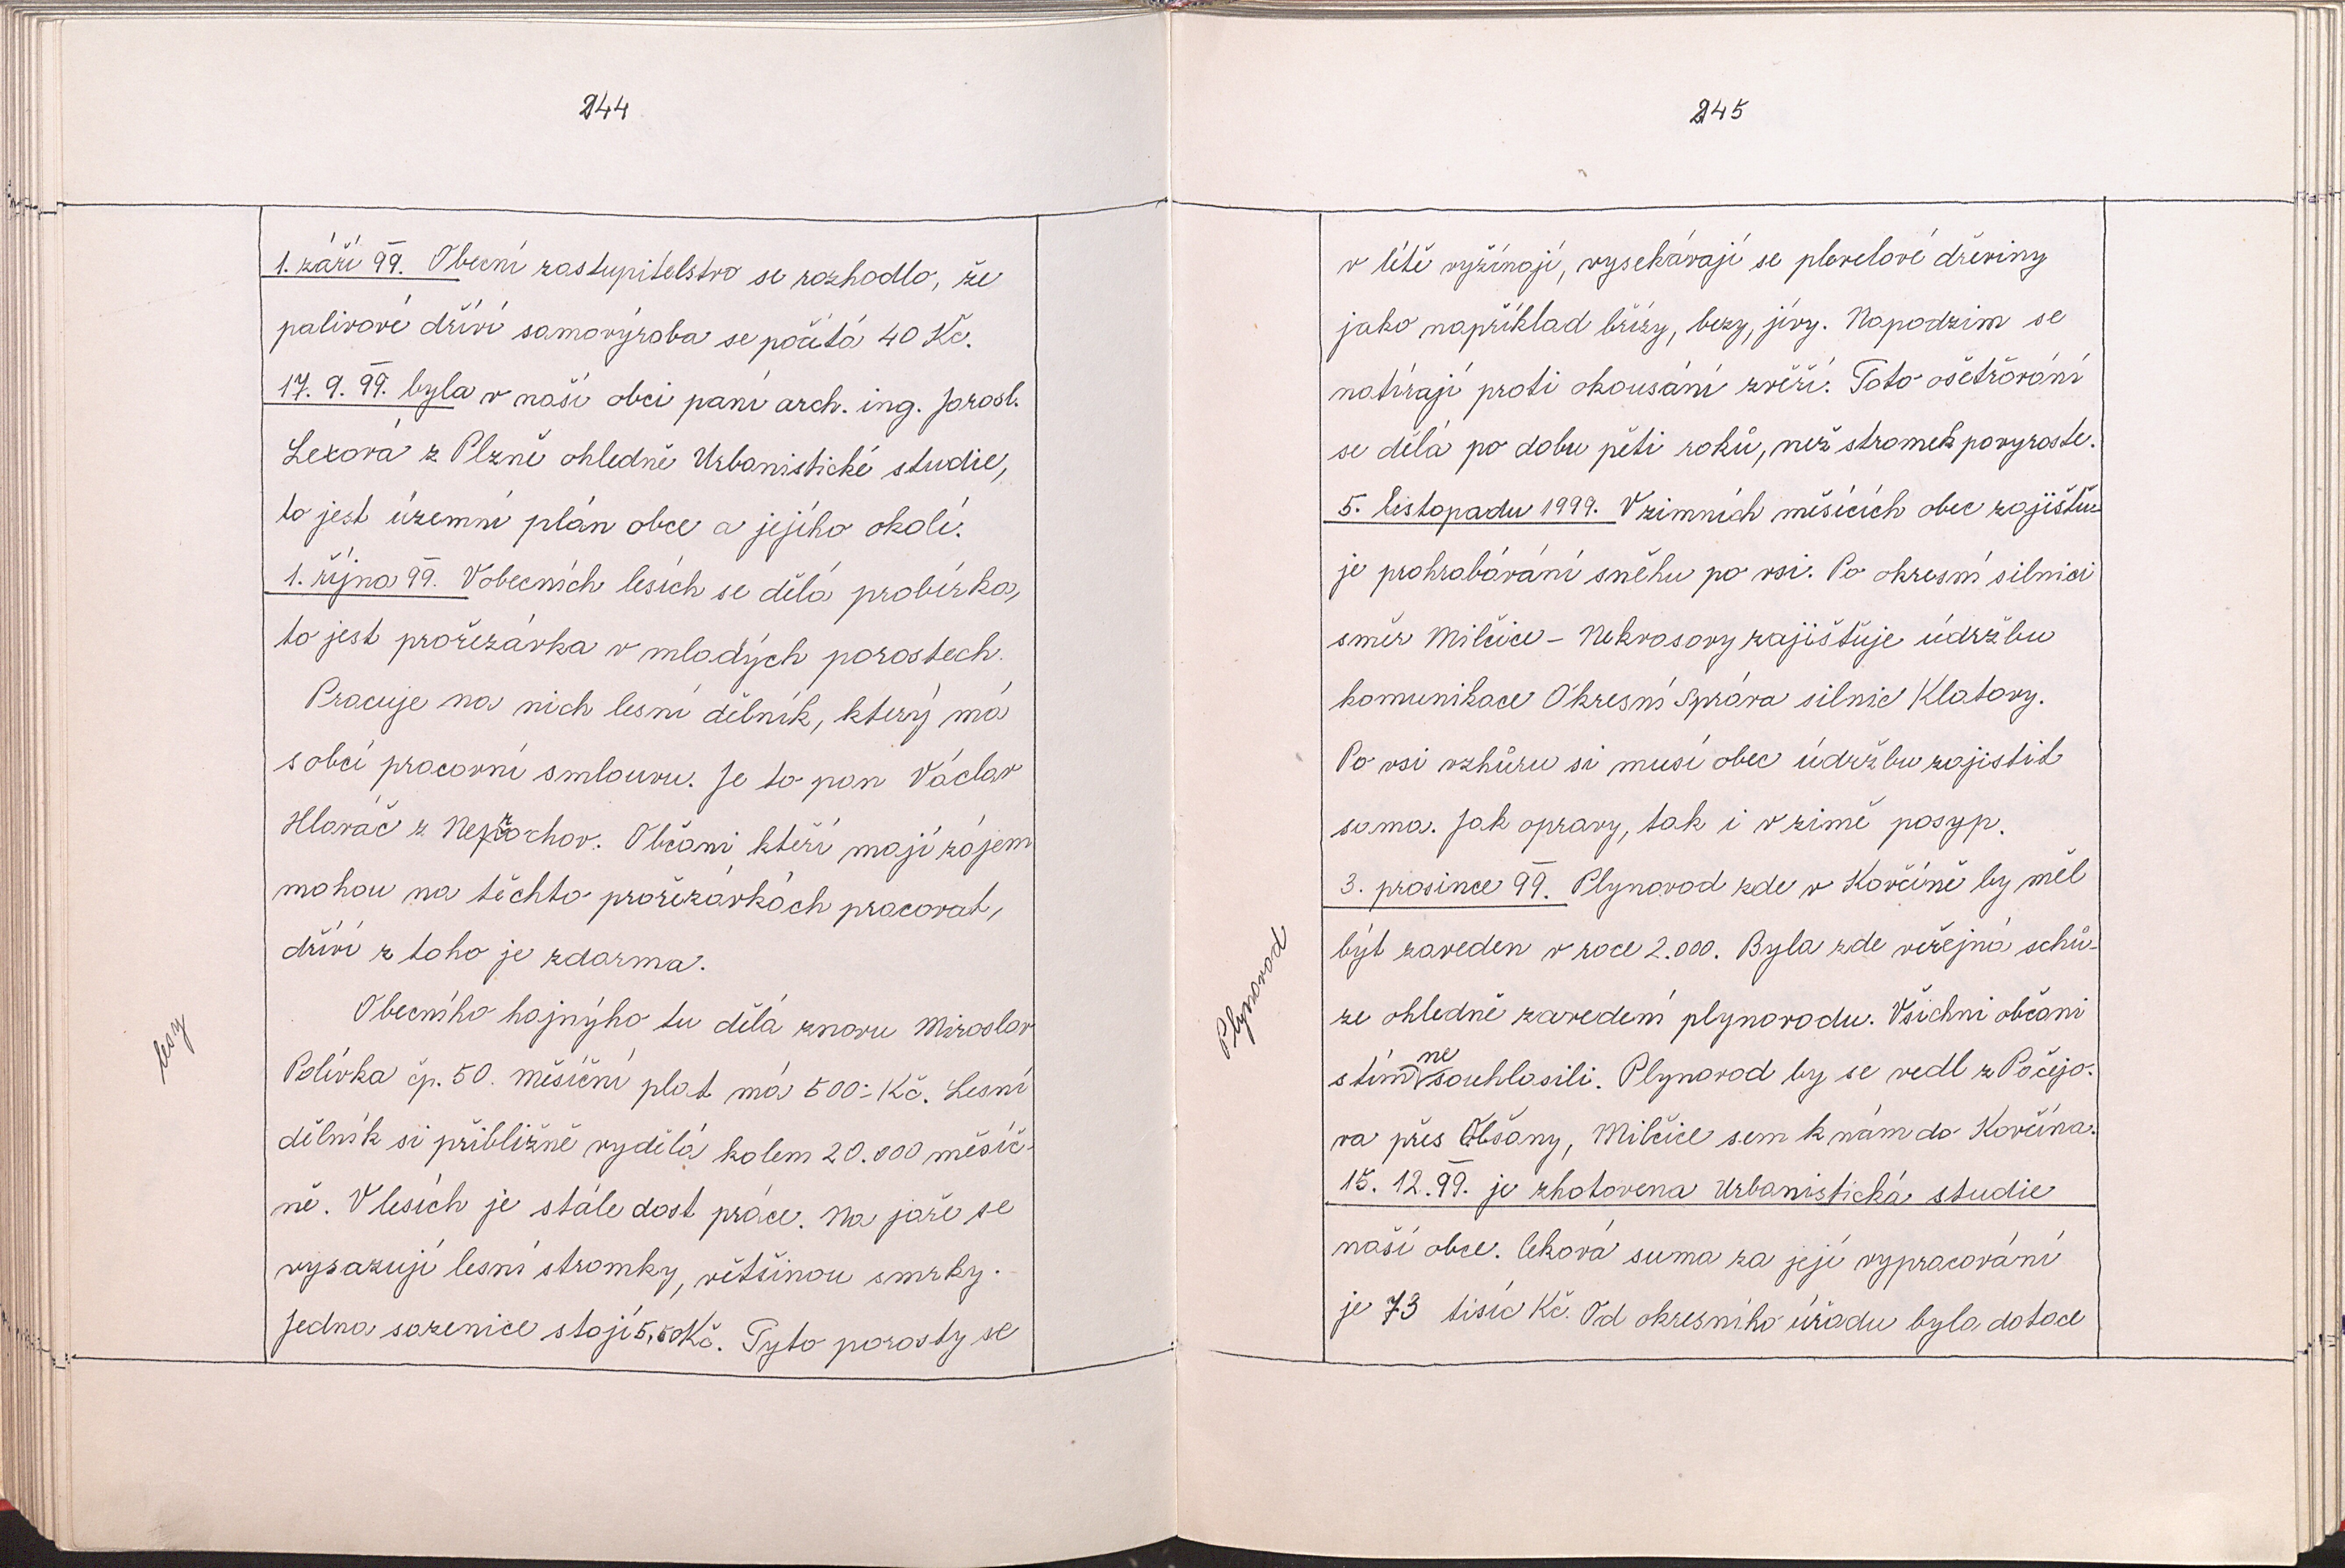 244
1. září 99. Obecní zastupitelstvo se rozhodlo, že
palivové dříví samovýroba se počítá 40 Kč.
17. 9. 99. byla v naší obci paní arch. ing. Jarosl.
Lexová z Plzně ohledně Urbanistické studie,
to jest územní plán obce a jejího okolí.
1. října 99. V obecních lesích se dělá probírka,
to jest prořezávka v mladých porostech.
Pracuje na nich lesní dělník, který má
s obcí pracovní smlouvu. Je to pan Václav
Hlaváč z Neprochov. Občani kteří mají zájem
mohou na těchto prořezávkách pracovat,
dříví z toho je zdarma.
Obecního hajnýho tu dělá znovu Miroslav
lesy
Polívka čp. 50. Měsíční plat má 500 Kč. Lesní
dělník si přibližně vydělá kolem 20.000 měsíč-
ně. V lesích je stále dost práce. Na jaře se
vysazují lesní stromky, většinou smrky.
Jedna sazenice stojí 5,50 Kč. Tyto porosty se
245
v létě vyžínají, vysekávají se plevelové dřeviny
jako například břízy, bezy, jívy. Napodzim se
natírají proti okousání zvěří. Toto ošetřování
se dělá po dobu pěti roků, než stromek povyroste.
5. listopadu 1999. V zimních měsících obec zajišťu-
je prohrabávání sněhu po vsi. Po okresní silnici
směr Milčice - Nekvasovy zajišťuje údržbu
komunikace Okresní Správa silnic Klatovy.
Po vsi vzhůru si musí obec údržbu zajistit
sama. Jak opravy, tak i v zimě posyp.
3. prosince 99. Plynovod zde v Kovčíně by měl
být zaveden v roce 2.000. Byla zde veřejná schů-
Plynovod
ze ohledně zavedení plynovodu. Všichni občani
s tím nesouhlasili. Plynovod by se vedl z Pačejo-
va přes Olšany, Milčice sem k nám do Kovčína.
15. 12. 99. je zhotovena Urbanistická studie
naší obce. Celková suma za její vypracování
je 73 tisíc Kč. Od okresního úřadu byla dotace